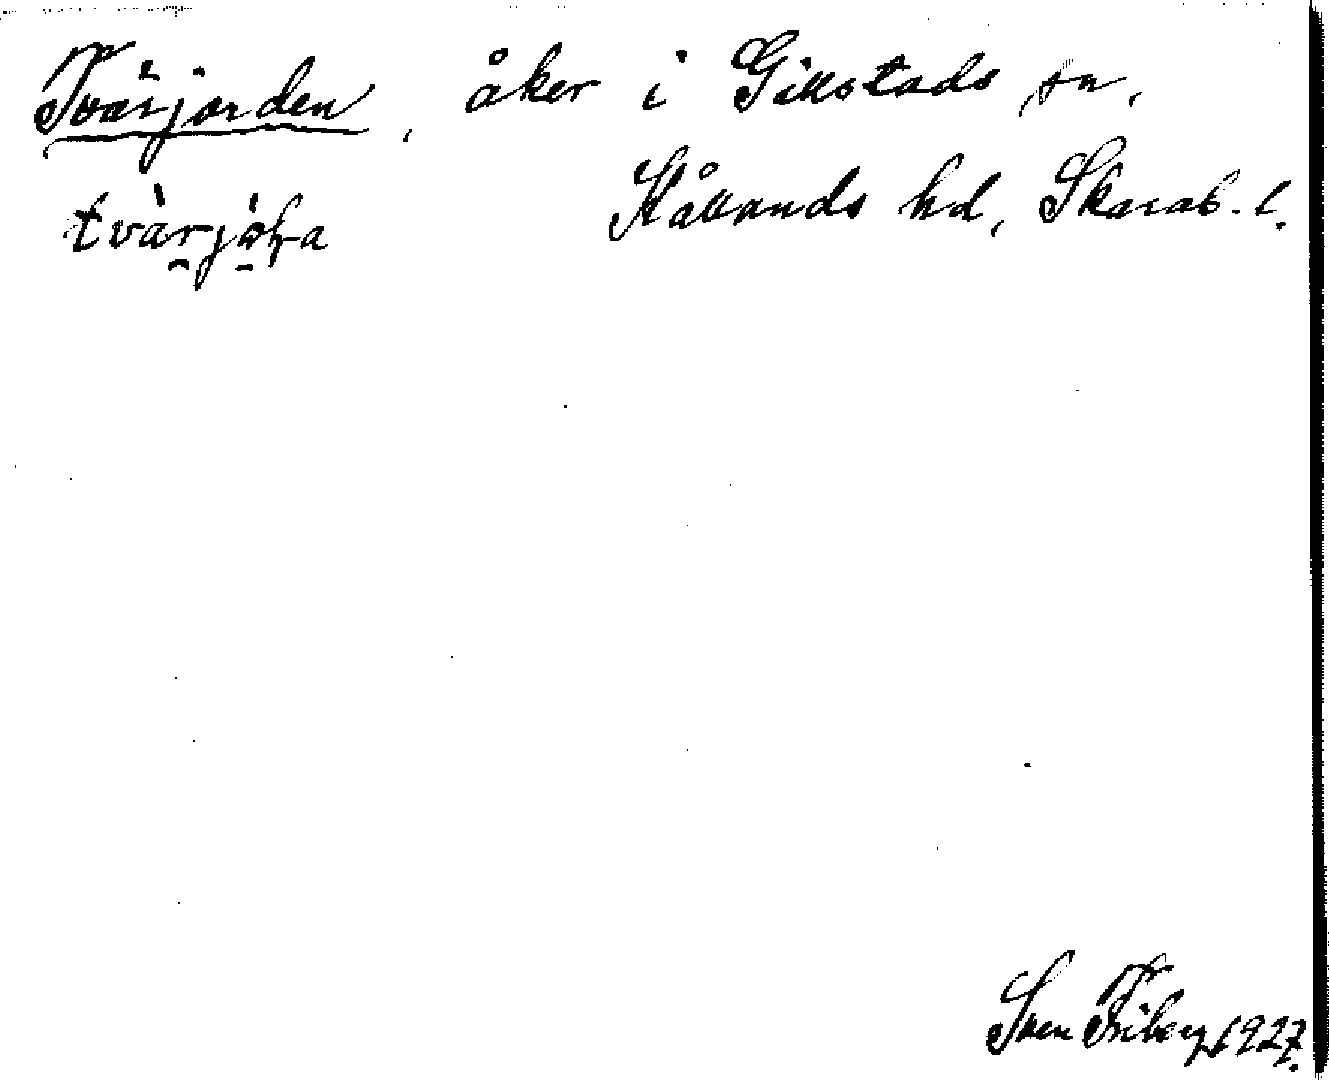 Tvärjorden, åker i Gillstads sn,
Kållands hd, Skarab. l.
Sven Friberg 1927.